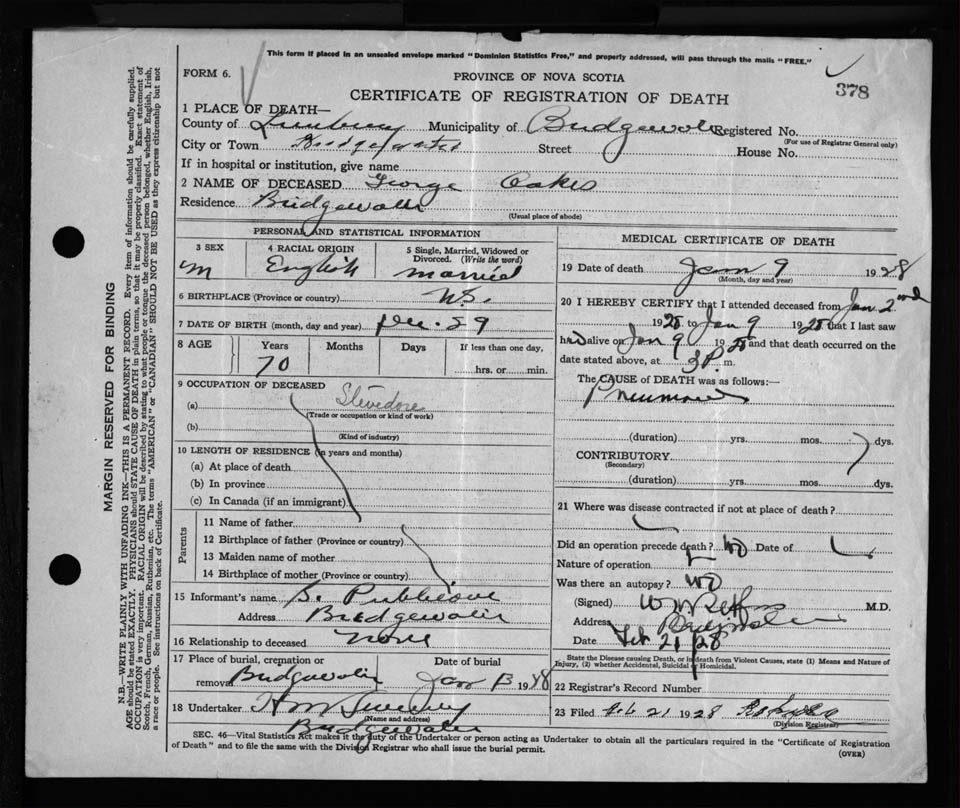 This form if placed in an unsealed envelope marked "Dominion Statistics Free," and properly addressed, will pass through the mails "FREE."
FORM 6.
PROVINCE OF NOVA SCOTIA
378
CERTIFICATE OF REGISTRATION OF DEATH
1 PLACE OF DEATH—
County of Lunenburg Municipality of Bridgewater Registered No.
(For use of Registrar General only)
City or Town Bridgewater Street House No.
If in hospital or institution, give name
2 NAME OF DECEASED George Oakes
Residence Bridgewater
(Usual place of abode)
PERSONAL AND STATISTICAL INFORMATION
3 SEX 4 RACIAL ORIGIN 5 Single, Married, Widowed or Divorced. (Write the word)
M English married
6 BIRTHPLACE (Province or country) N.S.
7 DATE OF BIRTH (month, day and year)
8 AGE Years Months Days If less than one day,
70 hrs. or min.
9 OCCUPATION OF DECEASED
(a) Stevedore
(Trade or occupation or kind of work)
(b)
(Kind of industry)
10 LENGTH OF RESIDENCE (in years and months)
(a) At place of death
(b) In province
(c) In Canada (if an immigrant)
Parents
11 Name of father
12 Birthplace of father (Province or country)
13 Maiden name of mother
14 Birthplace of mother (Province or country)
15 Informant's name S. Publicover
Address Bridgewater
16 Relationship to deceased none
17 Place of burial, cremation or Date of burial
removal Bridgewater Jan 13 1928
18 Undertaker H M
(Name and address)
Bridgewater
MEDICAL CERTIFICATE OF DEATH
19 Date of death Jan 9 1928
(Month, day and year)
20 I HEREBY CERTIFY that I attended deceased from Jan 2nd
1928 to Jan 9 1928 that I last saw
him alive on Jan 9 1928 and that death occurred on the
date stated above, at 3 P. m.
The CAUSE of DEATH was as follows:—
Pneumonia
(duration) yrs. mos. dys.
CONTRIBUTORY
(Secondary)
(duration) yrs. mos. dys.
21 Where was disease contracted if not at place of death?
Did an operation precede death? no Date of
Nature of operation
Was there an autopsy? no
(Signed) M.D.
Address Bridgewater
Date Feb 21/28
State the Disease causing Death, or in death from Violent Causes, state (1) Means and Nature of
Injury, (2) whether Accidental, Suicidal or Homicidal.
22 Registrar's Record Number
23 Filed Feb 21 1928
(Division Registrar)
SEC. 46—Vital Statistics Act makes it the duty of the Undertaker or person acting as Undertaker to obtain all the particulars required in the "Certificate of Registration
of Death" and to file the same with the Division Registrar who shall issue the burial permit.
(OVER)
MARGIN RESERVED FOR BINDING
N.B.—WRITE PLAINLY WITH UNFADING INK—THIS IS A PERMANENT RECORD. Every item of information should be carefully supplied.
AGE should be stated EXACTLY. PHYSICIANS should STATE CAUSE OF DEATH in plain terms, so that it may be properly classified. Exact statement of
OCCUPATION is very important. RACIAL ORIGIN will be described by stating to what people or tongue the deceased person belonged, whether English, Irish,
Scotch, French, German, Russian, Ruthenian, etc. The terms "AMERICAN" or "CANADIAN" SHOULD NOT BE USED as they express citizenship but not
a race or people. See instructions on back of Certificate.